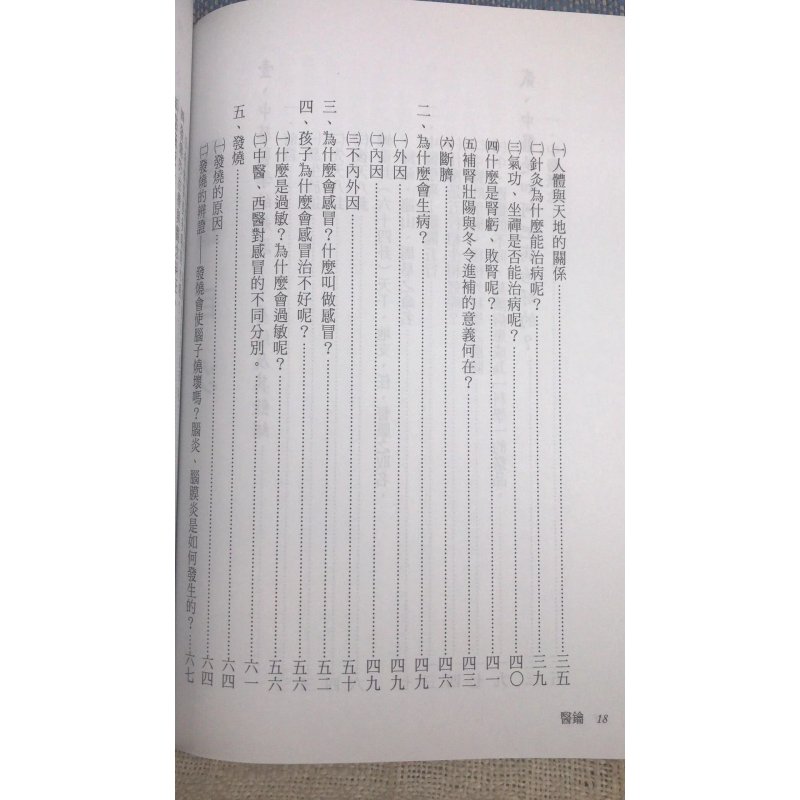 ㈠人體與天地的關係……三五
㈡針灸為什麼能治病呢？……三九
㈢氣功、坐禪是否能治病呢？……四〇
㈣什麼是腎虧、敗腎呢？……四一
㈤補腎壯陽與冬令進補的意義何在？……四三
㈥斷臍……四六
二、為什麼會生病？……四九
㈠外因……四九
㈡內因……四九
㈢不內外因……五十
三、為什麼會感冒？什麼叫做感冒？……五二
四、孩子為什麼會感冒治不好呢？……五六
㈠什麼是過敏？為什麼會過敏呢？……五六
㈡中醫、西醫對感冒的不同分別。……六一
五、發燒……六四
㈠發燒的原因……六四
㈡發燒的辨證——發燒會使腦子燒壞嗎？腦炎、腦膜炎是如何發生的？……六七
醫鑰 18